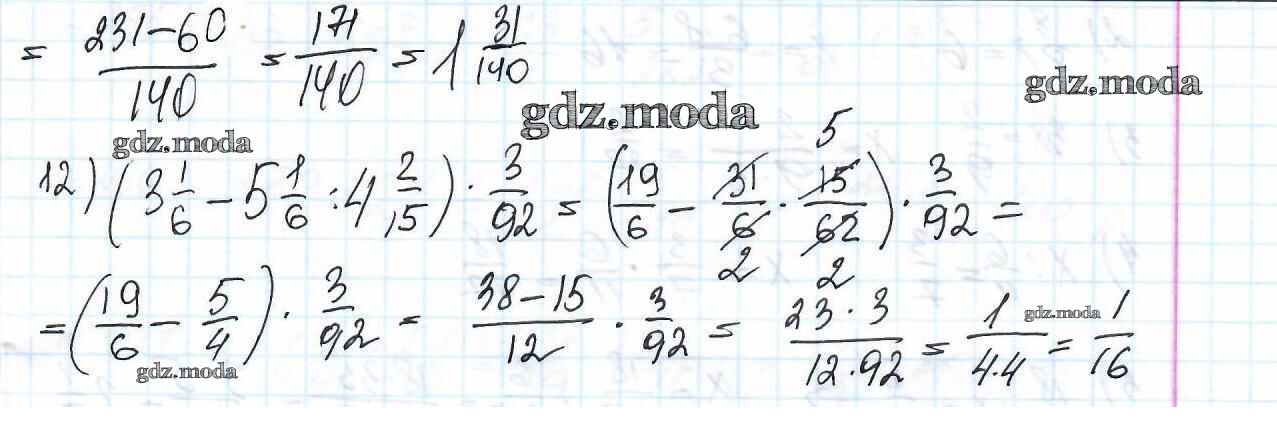 = 231-60/140 = 171/140 = 1 31/140
gdz.moda
gdz.moda
gdz.moda
5
12) (3 1/6 - 5 1/6 : 4 2/15) · 3/92 = (19/6 - 31/6 · 15/62) · 3/92 =
2 2
= (19/6 - 5/4) · 3/92 = 38-15/12 · 3/92 = 23·3/12·92 = 1/4·4 = 1/16
gdz.moda
gdz.moda